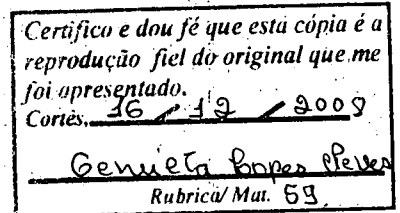 Certifico e dou fé que esta cópia é a
reprodução fiel do original que me
foi apresentado.
Cortês, 16 / 12 / 2009
Genieta Lopes
Rubrica/ Mat. 59